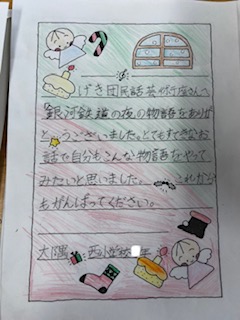 げき団民話芸術座さんへ
銀河鉄道の夜の物語をありが
とうございました。とてもすてきなお
話で自分もこんな物語をやって
みたいと思いました。これから
もがんばってください。
大隅 西小学校 年